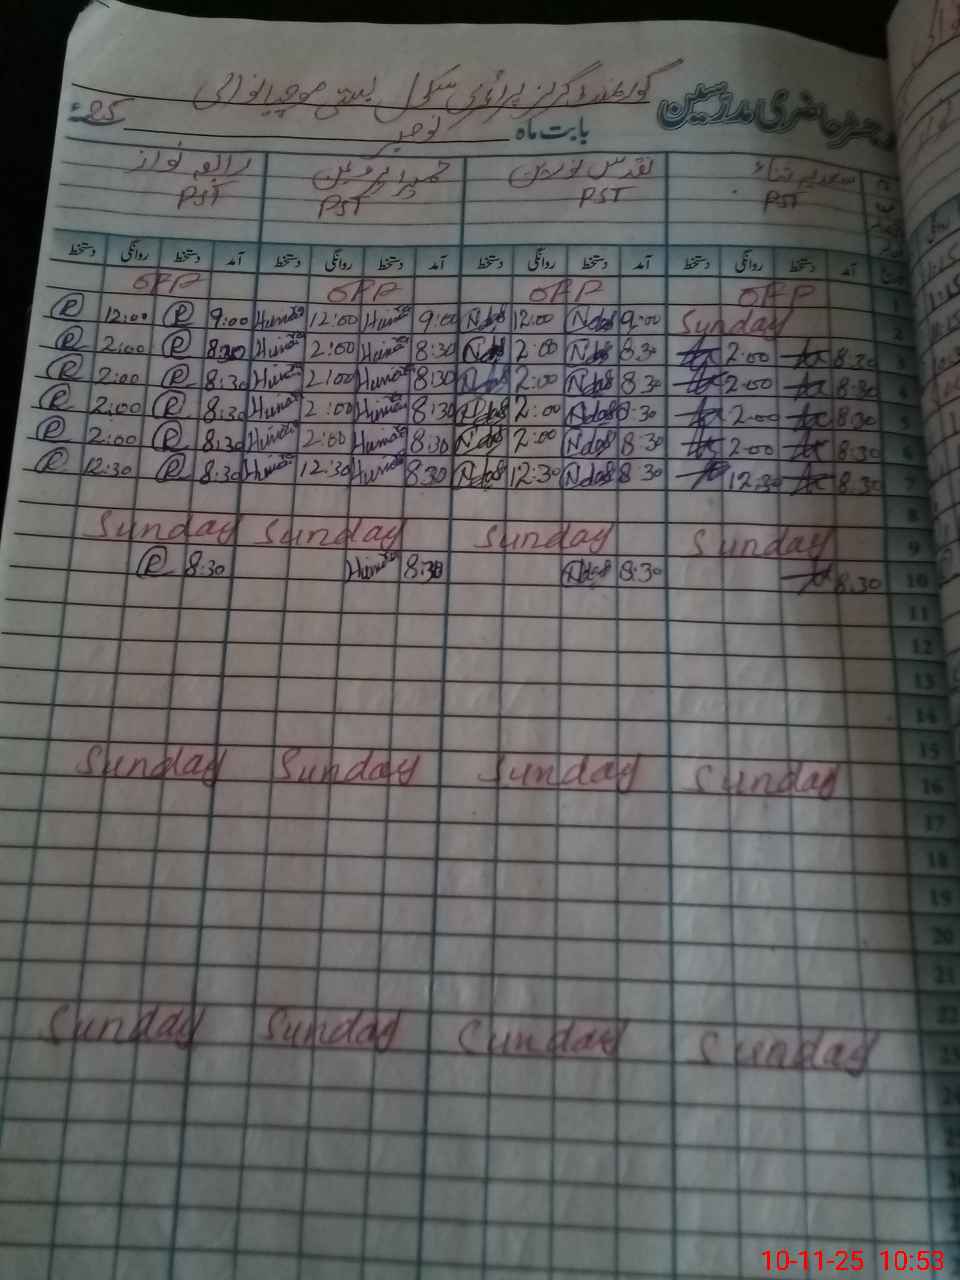 رجسٹر حاضری مدرسین گورنمنٹ گرلز پرائمری سکول بستی
بابت ماہ نومبر 25ء
سعدیہ ثناء تقدس نورین حمیرا پروین رابعہ نواز
PST PST PST PST
آمد دستخط روانگی دستخط آمد دستخط روانگی دستخط آمد دستخط روانگی دستخط آمد دستخط روانگی دستخط
1 OFF OFF OFF OFF
2 Sunday 9:00 Ndas 12:00 Ndas 9:00 Humaira 12:00 Humaira 9:00 R 12:00 R
3 8:30 2:00 8:30 Ndas 2:00 Ndas 8:30 Humaira 2:00 Humaira 8:30 R 2:00 R
4 8:30 2:00 8:30 Ndas 2:00 Ndas 8:30 Humaira 2:00 Humaira 8:30 R 2:00 R
5 8:30 2:00 8:30 Ndas 2:00 Ndas 8:30 Humaira 2:00 Humaira 8:30 R 2:00 R
6 8:30 2:00 8:30 Ndas 2:00 Ndas 8:30 Humaira 2:00 Humaira 8:30 R 2:00 R
7 8:30 12:30 8:30 Ndas 12:30 Ndas 8:30 Humaira 12:30 Humaira 8:30 R 12:30 R
8
9 Sunday Sunday Sunday Sunday
10 8:30 8:30 Ndas 8:30 Humaira 8:30 R
11
12
13
14
15
16 Sunday Sunday Sunday Sunday
17
18
19
20
21
22
23 Sunday Sunday Sunday Sunday
24
10-11-25 10:53